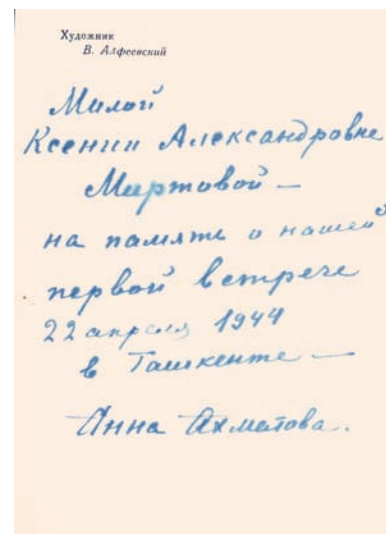 Художник
В. Алфеевский
Милой
Ксении Александровне
Мартовой —
на память о нашей
первой встрече
22 апреля 1944
в Ташкенте —
Анна Ахматова.